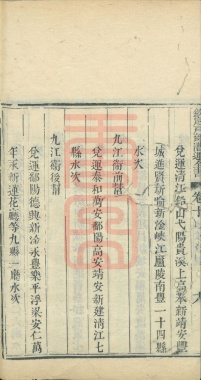 兌運清江鉛山弋陽貴溪上高萊新靖安豐
城進賢新喻新淦峽江廬陵南豐一十四縣
水次
九江衛前幫
兌運泰和萬安鄱陽高安靖安新建清江七
縣水次
九江衛後幫
兌運鄱陽德興新淦永豐樂平浮梁安仁萬
年永新蓮花廳等九縣一廳水次
卷十